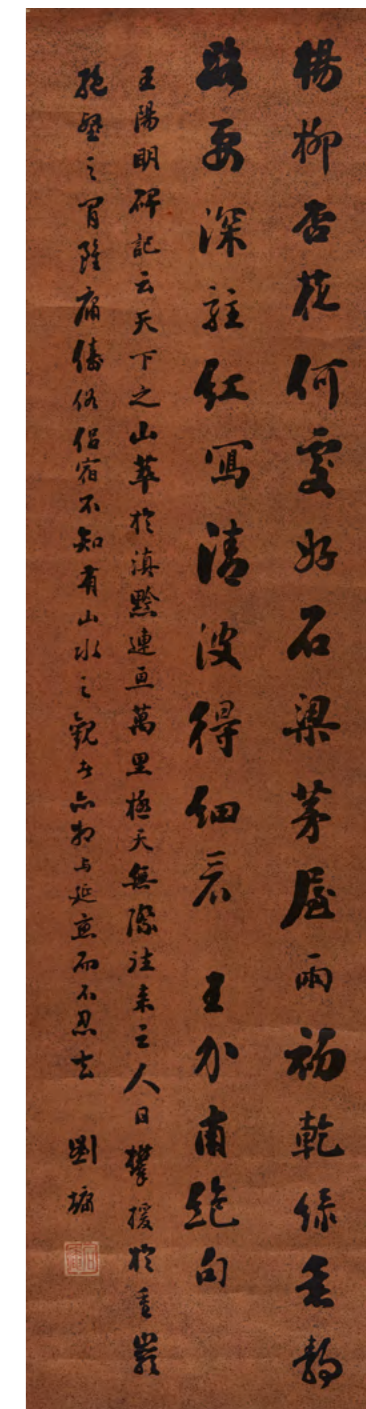 楊柳杏花何處好石梁茅屋雨初乾綠垂靜
路要深駐紅寫清波得細看 王介甫絕句
王陽明碑記云天下之山萃於滇黔連亘萬里極天無際往来之人日攀援於重巖
絕壑之間雖庸儔俗侶宿不知有山水之觀者亦相与延而不忍去 劉墉